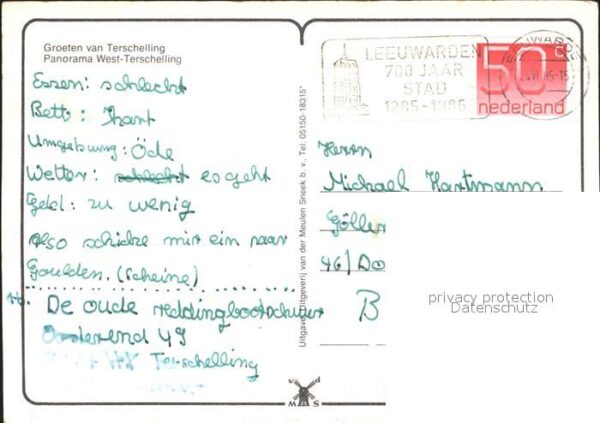 Groeten van Terschelling
Panorama West-Terschelling
Essen: schlecht
Bett: hart
Umgebung: Öde
Wetter: schlecht es geht
Geld: zu wenig
Also schicke mir ein paar
Goulden. (Scheine)
De oude reddingbootschuur
Oosterend 49
Terschelling
Uitgave: Uitgeverij van der Meulen Sneek b.v., Tel. 05150-18315*
LEEUWARDEN
700 JAAR
STAD
1285-1985
50c
nederland
Herrn
Michael Hartmann
46/Do
B
privacy protection
Datenschutz